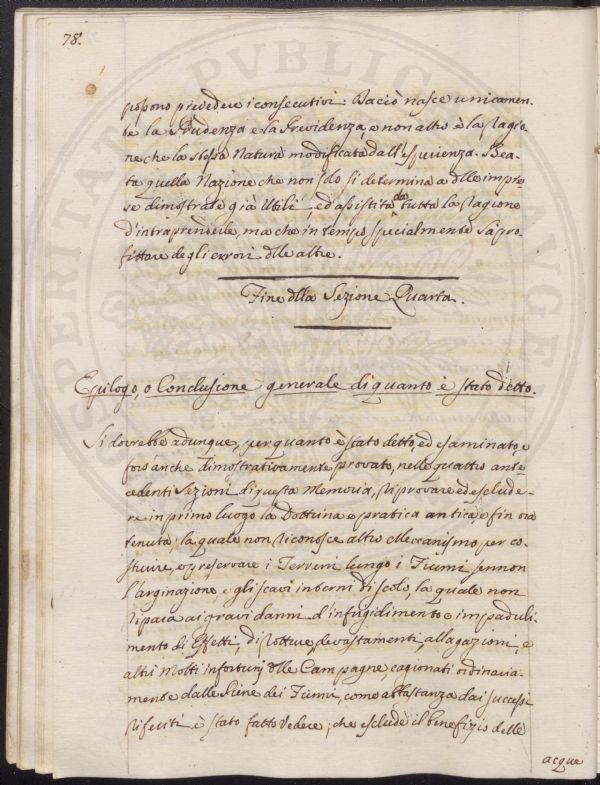 78.
possono prevedere i consecutivi: Da ciò nasce unicamen-
te la Prudenza e la Previdenza, e non altro è la Ragio-
ne che la stessa Natura modificata dall'esperienza. Bea-
ta quella Nazione che non solo si determina a dlle impre-
se dimostrate già Utili, ed assistita da tutta la ragione
d'intraprenderle, ma che in tempo specialmente sà pro-
fittare degli errori dlle altre.
Fine dlla Sezione Quarta.
Epilogo, o Conclusione generale di quanto è stato detto.
Si dovrebbe adunque, per quanto è stato detto, ed esaminato, e
fors'anche dimostrativamente provato, nelle quattro ante-
cedenti Sezioni di questa Memoria, riprovare ed esclude-
re in primo luogo la Dottrina e pratica antica, e fin ora
tenuta; la quale non riconosce altro Meccanismo per co-
stituire, e preservare i Terreni lungo i Fiumi sennon
l'arginazione, e gli scavi interni di scolo, la quale non
ripara ai gravi danni d'infrigidimento e impaduli-
mento di Effetti, di Rotture, devastamenti, allagazioni, e
altri molti infortunj dlle Campagne, cagionati ordinaria-
mente dalle Piene dei Fiumi, come abbastanza dai successi
riferiti è stato fatto vedere; che esclude il benefizio delle
acque
SPERI PVBLIC ANGEL